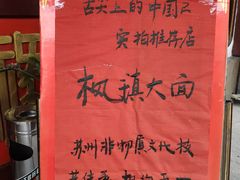 舌尖上的中国2
实拍推荐店
枫镇大面
苏州非物质文代技